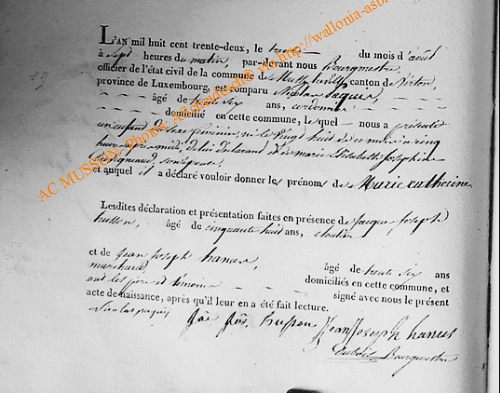 L'AN mil huit cent trente-deux, le trente du mois d'août
à sept heures du matin, par-devant nous Bourgmestre,
officier de l'état civil de la commune de canton de Virton,
province de Luxembourg, est comparu Nicolas Jaques,
âgé de trente six ans, cordonnier
domicilié en cette commune, le quel nous a présenté
un enfant du sexe féminin, né le vingt huit de ce mois à cinq
heures après midi, de lui déclarant et de marie Elisabeth Josephine
son épouse
et auquel il a déclaré vouloir donner les prénoms de Marie catherine
Lesdites déclaration et présentation faites en présence de Jacques Joseph
husson, âgé de cinquante huit ans, cloutier
et de jean Joseph hanus, âgé de trente six ans
marchand, domiciliés en cette commune, et
ont les père et témoins signé avec nous le présent
acte de naissance, après qu'il leur en a été fait lecture.
Nicolas jaques Jâc Jôs. husson Jean Joseph hanus
Bourgmestre
AC MUSSON, Photos http://wallonia-asb